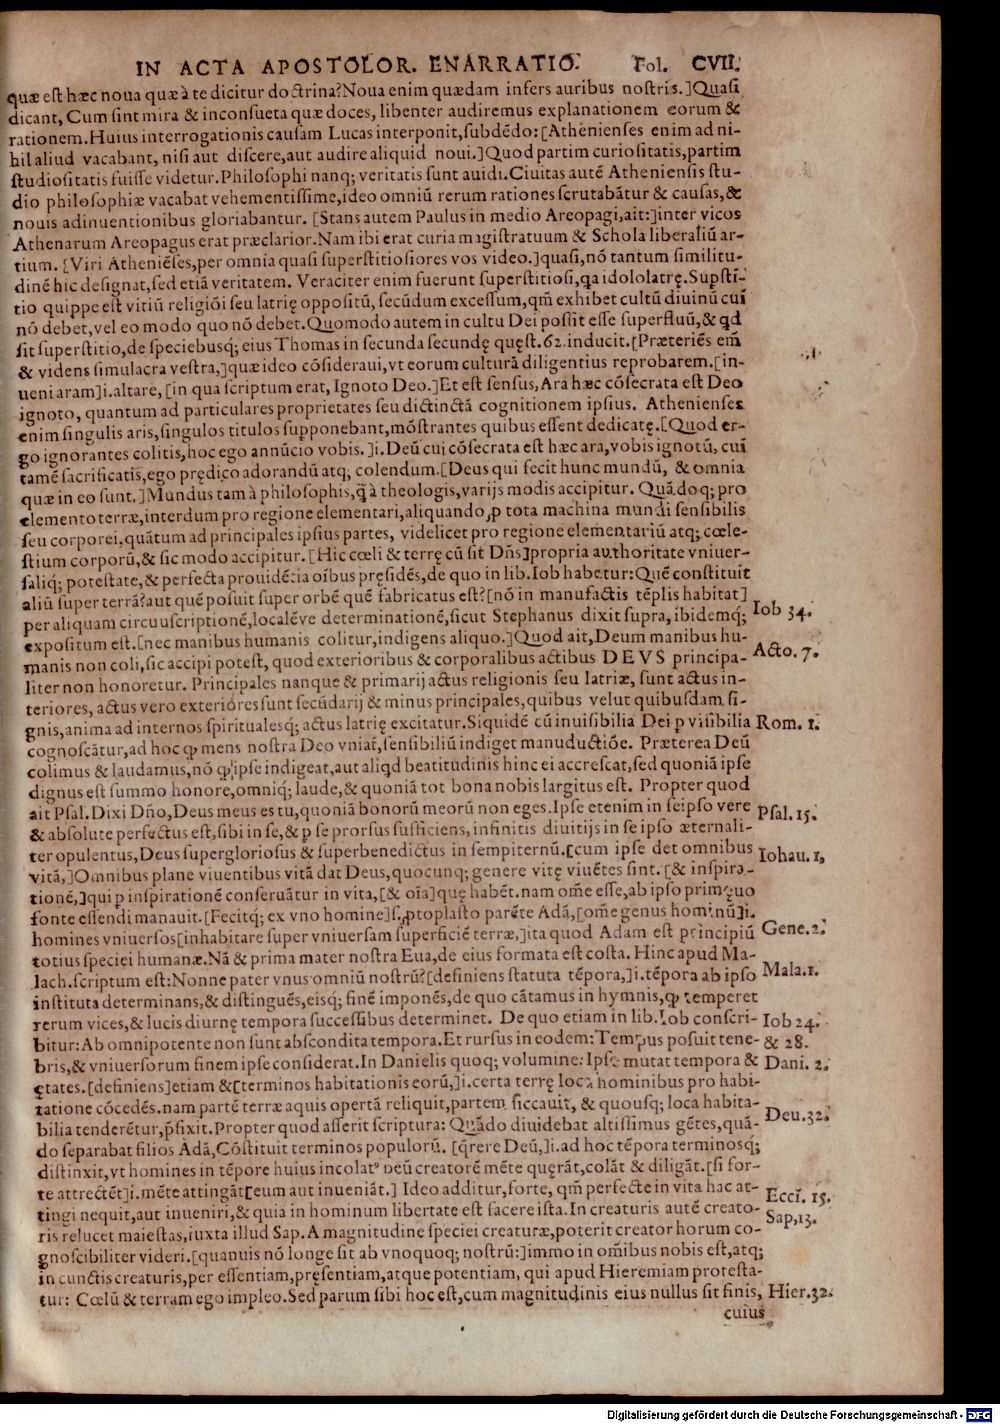 IN ACTA APOSTOLOR. ENARRATIO. Fol. CVII.
quæ est hæc noua quæ à te dicitur doctrina? Noua enim quædam infers auribus nostris.] Quasi
dicant, Cum sint mira & inconsueta quæ doces, libenter audiremus explanationem eorum &
rationem. Huius interrogationis causam Lucas interponit, subdēdo: [Athenienses enim ad ni-
hil aliud vacabant, nisi aut discere, aut audire aliquid noui.] Quod partim curiositatis, partim
studiositatis fuisse videtur. Philosophi nanq; veritatis sunt auidi. Ciuitas autē Atheniensis stu-
dio philosophiæ vacabat vehementissime, ideo omniū rerum rationes scrutabātur & causas, &
nouis adinuentionibus gloriabantur. [Stans autem Paulus in medio Areopagi, ait:] inter vicos
Athenarum Areopagus erat præclarior. Nam ibi erat curia magistratuum & Schola liberaliū ar-
tium. [Viri Atheniēses, per omnia quasi superstitiosiores vos video.] quasi, nō tantum similitu-
dinē hic designat, sed etiā veritatem. Veraciter enim fuerunt superstitiosi, qa idololatrę. Supsti-
tio quippe est vitiū religiōi seu latrię oppositū, secūdum excessum, qm̄ exhibet cultū diuinū cui
nō debet, vel eo modo quo nō debet. Quomodo autem in cultu Dei possit esse superfluū, & qd
sit superstitio, de speciebusq; eius Thomas in secunda secundę quęst. 62. inducit. [Præteriēs em̄
& videns simulacra vestra,] quæ ideo cōsideraui, vt eorum culturā diligentius reprobarem. [in-
ueni aram] i. altare, [in qua scriptum erat, Ignoto Deo.] Et est sensus, Ara hæc cōsecrata est Deo
ignoto, quantum ad particulares proprietates seu dictinctā cognitionem ipsius. Athenienses
enim singulis aris, singulos titulos supponebant, mōstrantes quibus essent dedicatę. [Quod er-
go ignorantes colitis, hoc ego annūcio vobis.] i. Deū cui cōsecrata est hæc ara, vobis ignotū, cui
tamē sacrificatis, ego prędico adorandū atq; colendum. [Deus qui fecit hunc mundū, & omnia
quæ in eo sunt.] Mundus tam à philosophis, q̄ à theologis, varijs modis accipitur. Quādoq; pro
elemento terræ, interdum pro regione elementari, aliquando, ꝓ tota machina mundi sensibilis
seu corporei, quātum ad principales ipsius partes, videlicet pro regione elementariū atq; cœle-
stium corporū, & sic modo accipitur. [Hic cœli & terrę cū sit Dn̄s] propria authoritate vniuer-
saliq; potestate, & perfecta prouidētia oībus pręsidēs, de quo in lib. Iob habetur: Quē constituit
aliū super terrā? aut quē posuit super orbē quē fabricatus est? [nō in manufactis tēplis habitat]
per aliquam circuuscriptionē, localēve determinationē, sicut Stephanus dixit supra, ibidemq; Iob 34.
expositum est. [nec manibus humanis colitur, indigens aliquo.] Quod ait, Deum manibus hu-
manis non coli, sic accipi potest, quod exterioribus & corporalibus actibus DEVS principa- Acto. 7.
liter non honoretur. Principales nanque & primarij actus religionis seu latriæ, sunt actus in-
teriores, actus vero exteriores sunt secūdarij & minus principales, quibus velut quibusdam si-
gnis, anima ad internos spiritualesq; actus latrię excitatur. Siquidē cū inuisibilia Dei p visibilia Rom. 1.
cognoscātur, ad hoc ꝙ mens nostra Deo vniat̄, sensibiliū indiget manuductiōe. Præterea Deū
colimus & laudamus, nō ꝙ ipse indigeat, aut aliqd beatitudinis hinc ei accrescat, sed quoniā ipse
dignus est summo honore, omniq; laude, & quoniā tot bona nobis largitus est. Propter quod
ait Psal. Dixi Dn̄o, Deus meus es tu, quoniā bonorū meorū non eges. Ipse etenim in seipso vere Psal. 15.
& absolute perfectus est, sibi in se, & p se prorsus sufficiens, infinitis diuitijs in se ipso æternali-
ter opulentus, Deus supergloriosus & superbenedictus in sempiternū. [cum ipse det omnibus Iohau. 1.
vitā,] Omnibus plane viuentibus vitā dat Deus, quocunq; genere vitę viuētes sint. [& inspira-
tionē,] qui p inspirationē conseruātur in vita, [& oīa] quę habēt. nam om̄e esse, ab ipso primęuo
fonte essendi manauit. [Fecitq; ex vno homine] s. ꝓtoplasto parēte Adā, [om̄e genus hominū] i.
homines vniuersos [inhabitare super vniuersam superficiē terræ,] ita quod Adam est principiū Gene. 2.
totius speciei humanæ. Nā & prima mater nostra Eua, de eius formata est costa. Hinc apud Ma-
lach. scriptum est: Nonne pater vnus omniū nostrū? [definiens statuta tēpora,] i. tēpora ab ipso Mala. 1.
instituta determinans, & distinguēs, eisq; finē imponēs, de quo cātamus in hymnis, ꝙ temperet
rerum vices, & lucis diurnę tempora successibus determinet. De quo etiam in lib. Iob conscri- Iob 24.
bitur: Ab omnipotente non sunt abscondita tempora. Et rursus in eodem: Tempus posuit tene- & 28.
bris, & vniuersorum finem ipse considerat. In Danielis quoq; volumine: Ipse mutat tempora & Dani. 2.
ętates. [definiens] etiam & [terminos habitationis eorū,] i. certa terrę loca hominibus pro habi-
tatione cōcedēs. nam partē terræ aquis opertā reliquit, partem siccauit, & quousq; loca habita-
bilia tenderētur, p̄fixit. Propter quod asserit scriptura: Quādo diuidebat altissimus gētes, quā- Deu. 32.
do separabat filios Adā, Cōstituit terminos populorū. [qrere Deū,] i. ad hoc tēpora terminosq;
distinxit, vt homines in tēpore huius incolatꝰ Deū creatorē mēte quęrāt, colāt & diligāt. [si for-
te attrectēt] i. mēte attingāt [eum aut inueniāt.] Ideo additur, forte, qm̄ perfecte in vita hac at-
tingi nequit, aut inueniri, & quia in hominum libertate est facere ista. In creaturis autē creato- Eccī. 15.
ris relucet maiestas, iuxta illud Sap. A magnitudine speciei creaturæ, poterit creator horum co- Sap, 13.
gnoscibiliter videri. [quanuis nō longe sit ab vnoquoq; nostrū:] immo in om̄ibus nobis est, atq;
in cunctis creaturis, per essentiam, pręsentiam, atque potentiam, qui apud Hieremiam protesta-
tur: Cœlū & terram ego impleo. Sed parum sibi hoc est, cum magnitudinis eius nullus sit finis, Hier. 32.
cuius
Digitalisierung gefördert durch die Deutsche Forschungsgemeinschaft - DFG